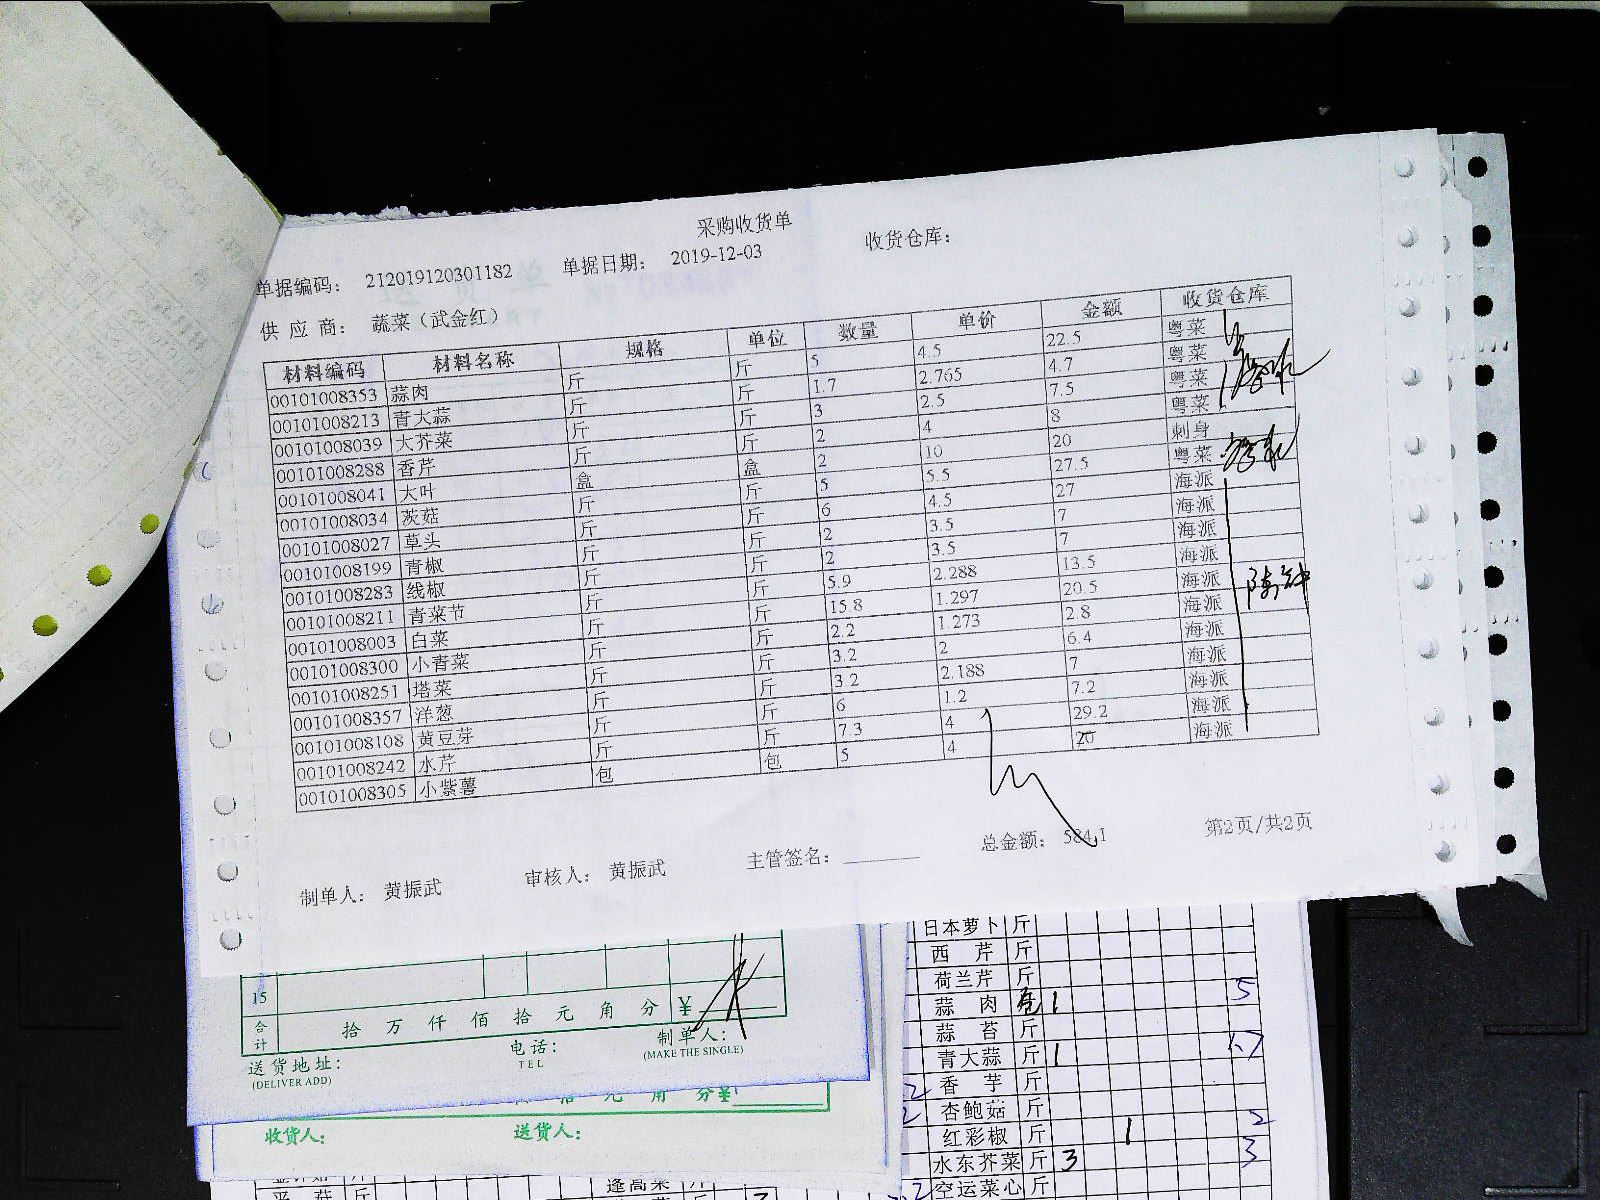 采购收货单
单据编码： 212019120301182 单据日期： 2019-12-03 收货仓库：
供 应 商： 蔬菜（武金红）
材料编码 材料名称 规格 单位 数量 单价 金额 收货仓库
00101008353 蒜肉 斤 斤 5 4.5 22.5 粤菜
00101008213 青大蒜 斤 斤 1.7 2.765 4.7 粤菜
00101008039 大芥菜 斤 斤 3 2.5 7.5 粤菜
00101008288 香芹 斤 斤 2 4 8 粤菜
00101008041 大叶 盒 盒 2 10 20 刺身
00101008034 茨菇 斤 斤 5 5.5 27.5 粤菜
00101008027 草头 斤 斤 6 4.5 27 海派
00101008199 青椒 斤 斤 2 3.5 7 海派
00101008283 线椒 斤 斤 2 3.5 7 海派
00101008211 青菜节 斤 斤 5.9 2.288 13.5 海派
00101008003 白菜 斤 斤 15.8 1.297 20.5 海派
00101008300 小青菜 斤 斤 2.2 1.273 2.8 海派
00101008251 塔菜 斤 斤 3.2 2 6.4 海派
00101008357 洋葱 斤 斤 3.2 2.188 7 海派
00101008108 黄豆芽 斤 斤 6 1.2 7.2 海派
00101008242 水芹 斤 斤 7.3 4 29.2 海派
00101008305 小紫薯 包 包 5 4 20 海派
制单人： 黄振武 审核人： 黄振武 主管签名： 总金额： 584.1 第2页/共2页
15
合计 拾 万 仟 佰 拾 元 角 分 ¥
送货地址： 电话： 制单人：
(DELIVER ADD) TEL (MAKE THE SINGLE)
元 角 分 ¥
收货人： 送货人：
日本萝卜 斤
西 芹 斤
荷兰芹 斤
蒜 肉 1 5
蒜 苔 斤
青大蒜 斤 1 1.7
香 芋 斤
杏鲍菇 斤
红彩椒 斤 1 2
水东芥菜 斤 3 3
空运菜心 斤
蓬高菜 斤